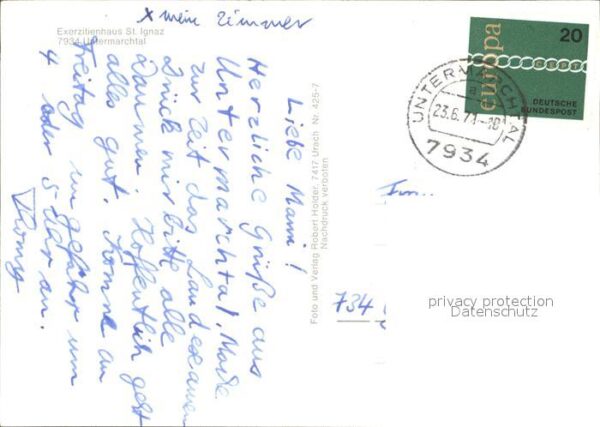 x mein Zimmer
Exerzitienhaus St. Ignaz
7934 Untermarchtal
Liebe Mami!
Herzliche Grüße aus
Untermarchtal. Mache
zur Zeit das Landexamen
Drück mir bitte alle
Daumen. Hoffentlich geht
alles gut. Komme am
Freitag ungefähr um
4 oder 5 Uhr an.
Thomy
Foto und Verlag Robert Holder, 7417 Urach Nr. 425-7
Nachdruck verboten
europa
20
DEUTSCHE
BUNDESPOST
UNTERMARCHTAL
a
23.6.71-18
7934
734
privacy protection
Datenschutz